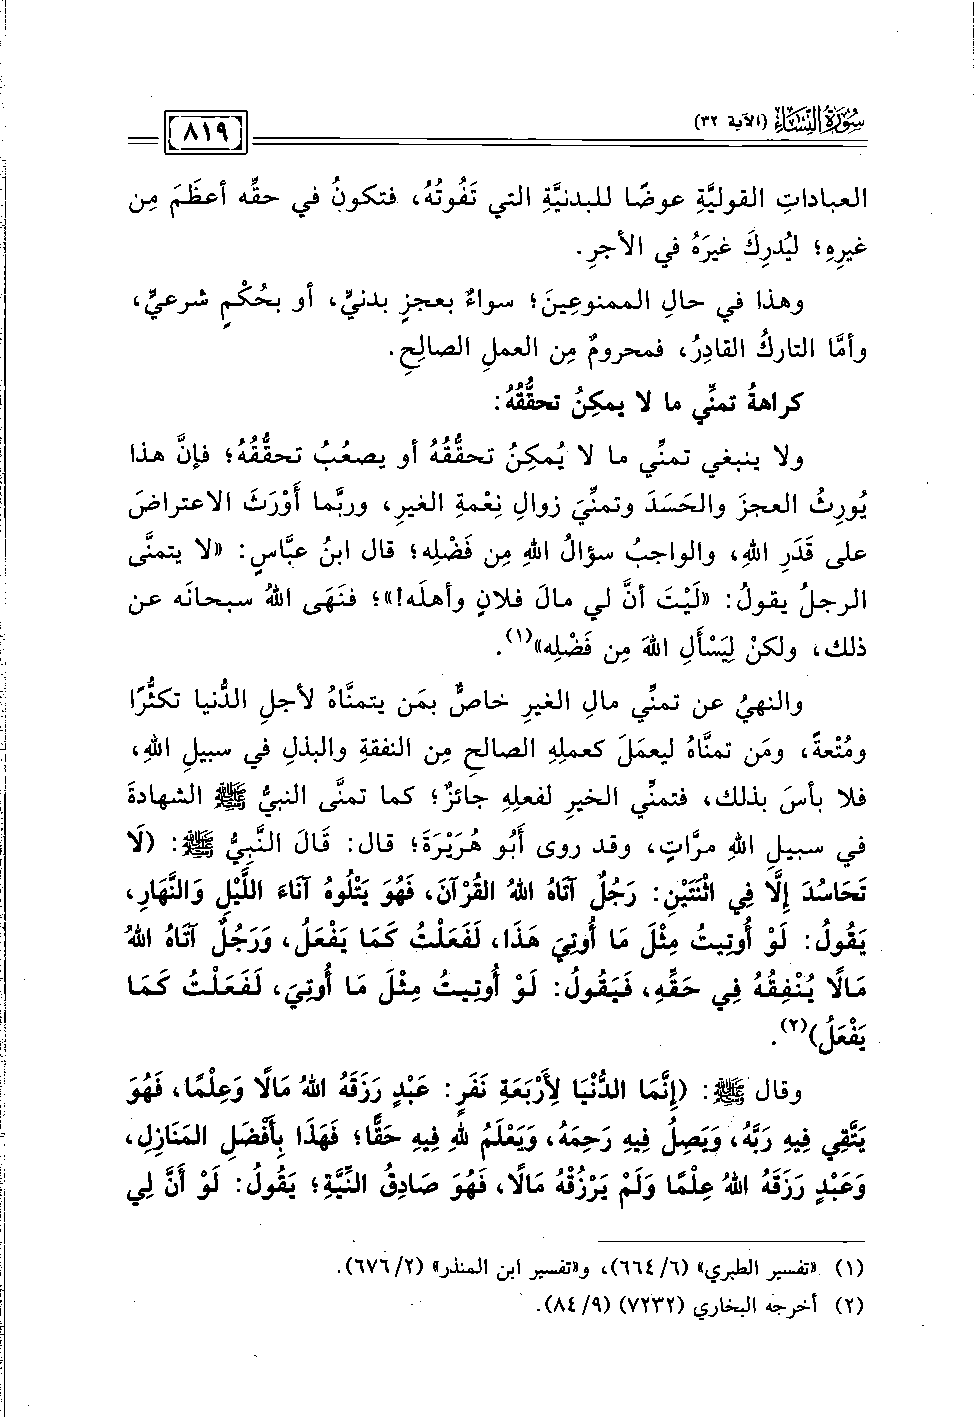 سُورَةُ النِّسَاءِ (الآية ٣٢)
٨١٩
العباداتِ القوليَّةِ عوضًا للبدنيَّةِ التي تَفُوتُهُ، فتكونُ في حقِّه أعظَمَ مِن
غيرِهِ؛ ليُدرِكَ غيرَهُ في الأجرِ.
وهذا في حالِ الممنوعِينَ؛ سواءٌ بعجزٍ بدنيٍّ، أو بحُكْمٍ شرعيٍّ،
وأمَّا التاركُ القادِرُ، فمحرومٌ مِن العملِ الصالِحِ.
كراهةُ تمنِّي ما لا يمكِنُ تحقُّقُهُ:
ولا ينبغي تمنِّي ما لا يُمكِنُ تحقُّقُهُ أو يصعُبُ تحقُّقُهُ؛ فإنَّ هذا
يُورِثُ العجزَ والحَسَدَ وتمنِّيَ زوالِ نِعْمةِ الغيرِ، وربَّما أَوْرَثَ الاعتراضَ
على قَدَرِ اللهِ، والواجبُ سؤالُ اللهِ مِن فَضْلِه؛ قال ابنُ عبَّاسٍ: «لا يتمنَّى
الرجلُ يقولُ: «لَيْتَ أنَّ لي مالَ فلانٍ وأهلَه!»؛ فنَهَى اللهُ سبحانَه عن
ذلك، ولكنْ لِيَسْأَلِ اللهَ مِن فَضْلِه»(١).
والنهيُ عن تمنِّي مالِ الغيرِ خاصٌّ بمَن يتمنَّاهُ لأجلِ الدُّنيا تكثُّرًا
ومُتْعةً، ومَن تمنَّاهُ ليعمَلَ كعملِهِ الصالحِ مِن النفقةِ والبذلِ في سبيلِ اللهِ،
فلا بأسَ بذلك، فتمنِّي الخيرِ لفعلِهِ جائزٌ؛ كما تمنَّى النبيُّ ﷺ الشهادةَ
في سبيلِ اللهِ مرَّاتٍ، وقد روى أَبُو هُرَيْرَةَ؛ قال: قَالَ النَّبِيُّ ﷺ: (لَا
تَحَاسُدَ إِلَّا فِي اثْنَتَيْنِ: رَجُلٌ آتَاهُ اللهُ القُرْآنَ، فَهُوَ يَتْلُوهُ آنَاءَ اللَّيْلِ وَالنَّهَارِ،
يَقُولُ: لَوْ أُوتِيتُ مِثْلَ مَا أُوتِيَ هَذَا، لَفَعَلْتُ كَمَا يَفْعَلُ، وَرَجُلٌ آتَاهُ اللهُ
مَالًا يُنْفِقُهُ فِي حَقِّهِ، فَيَقُولُ: لَوْ أُوتِيتُ مِثْلَ مَا أُوتِيَ، لَفَعَلْتُ كَمَا
يَفْعَلُ)(٢).
وقال ﷺ: (إِنَّمَا الدُّنْيَا لِأَرْبَعَةِ نَفَرٍ: عَبْدٍ رَزَقَهُ اللهُ مَالًا وَعِلْمًا، فَهُوَ
يَتَّقِي فِيهِ رَبَّهُ، وَيَصِلُ فِيهِ رَحِمَهُ، وَيَعْلَمُ للهِ فِيهِ حَقًّا؛ فَهَذَا بِأَفْضَلِ المَنَازِلِ،
وَعَبْدٍ رَزَقَهُ اللهُ عِلْمًا وَلَمْ يَرْزُقْهُ مَالًا، فَهُوَ صَادِقُ النِّيَّةِ؛ يَقُولُ: لَوْ أَنَّ لِي
(١) «تفسير الطبري» (٦/ ٦٦٤)، و«تفسير ابن المنذر» (٢/ ٦٧٦).
(٢) أخرجه البخاري (٧٢٣٢) (٩/ ٨٤).